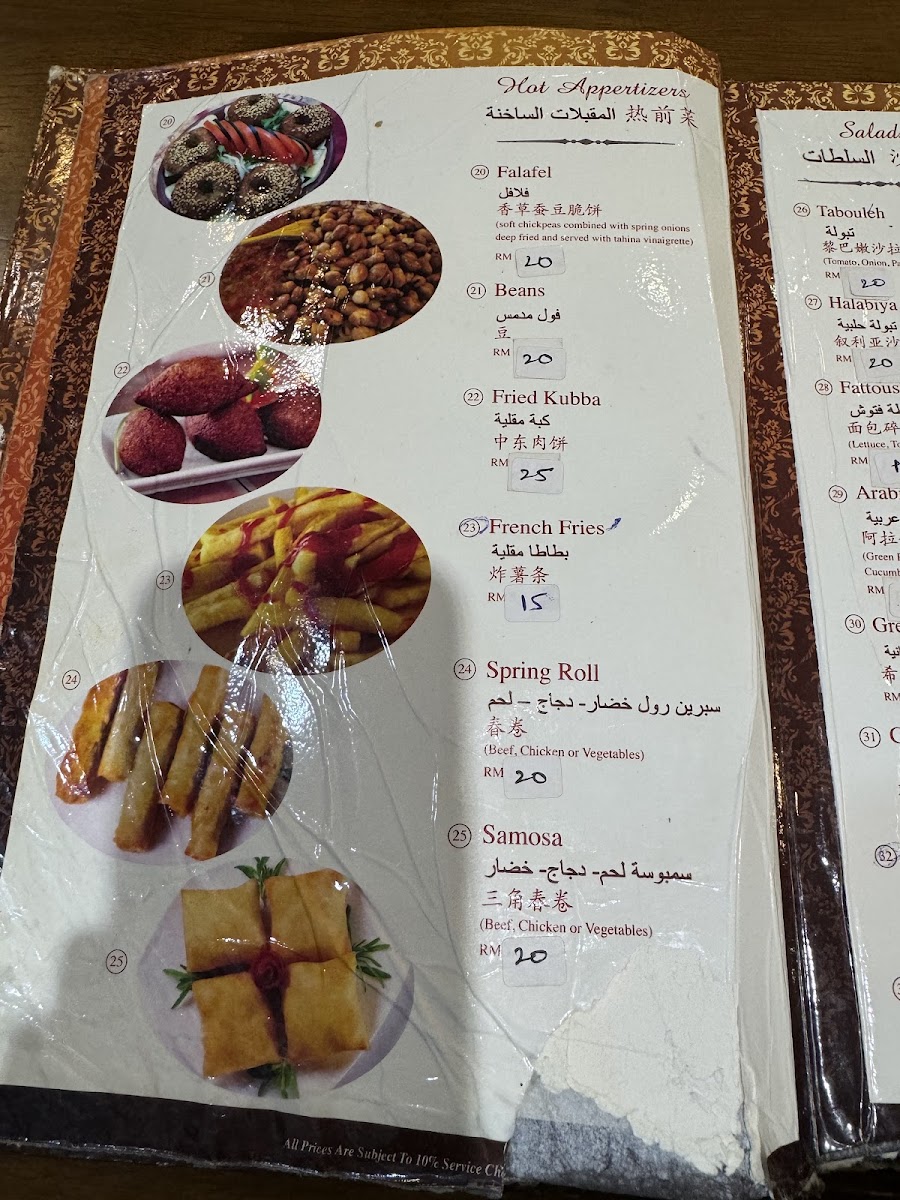 Hot Appertizers
المقبلات الساخنة 热前菜
20
20 Falafel
فلافل
香草蚕豆脆饼
(soft chickpeas combined with spring onions
deep fried and served with tahina vinaigrette)
RM 20
21
21 Beans
فول مدمس
豆
RM 20
22
22 Fried Kubba
كبة مقلية
中东肉饼
RM 25
23
23 French Fries
بطاطا مقلية
炸薯条
RM 15
24
24 Spring Roll
سبرين رول خضار- دجاج – لحم
春卷
(Beef, Chicken or Vegetables)
RM 20
25
25 Samosa
سمبوسة لحم- دجاج- خضار
三角春卷
(Beef, Chicken or Vegetables)
RM 20
All Prices Are Subject To 10% Service
السلطات
26 Tabouleh
تبولة
黎巴嫩沙拉
(Tomato, Onion,
RM 20
27 Halabiya
تبولة حلبية
叙利亚沙
RM 20
28 Fattous
فتوش
面包碎
(Lettuce,
RM
29
عربية
阿拉
(Green
RM
30
希
RM
31
32